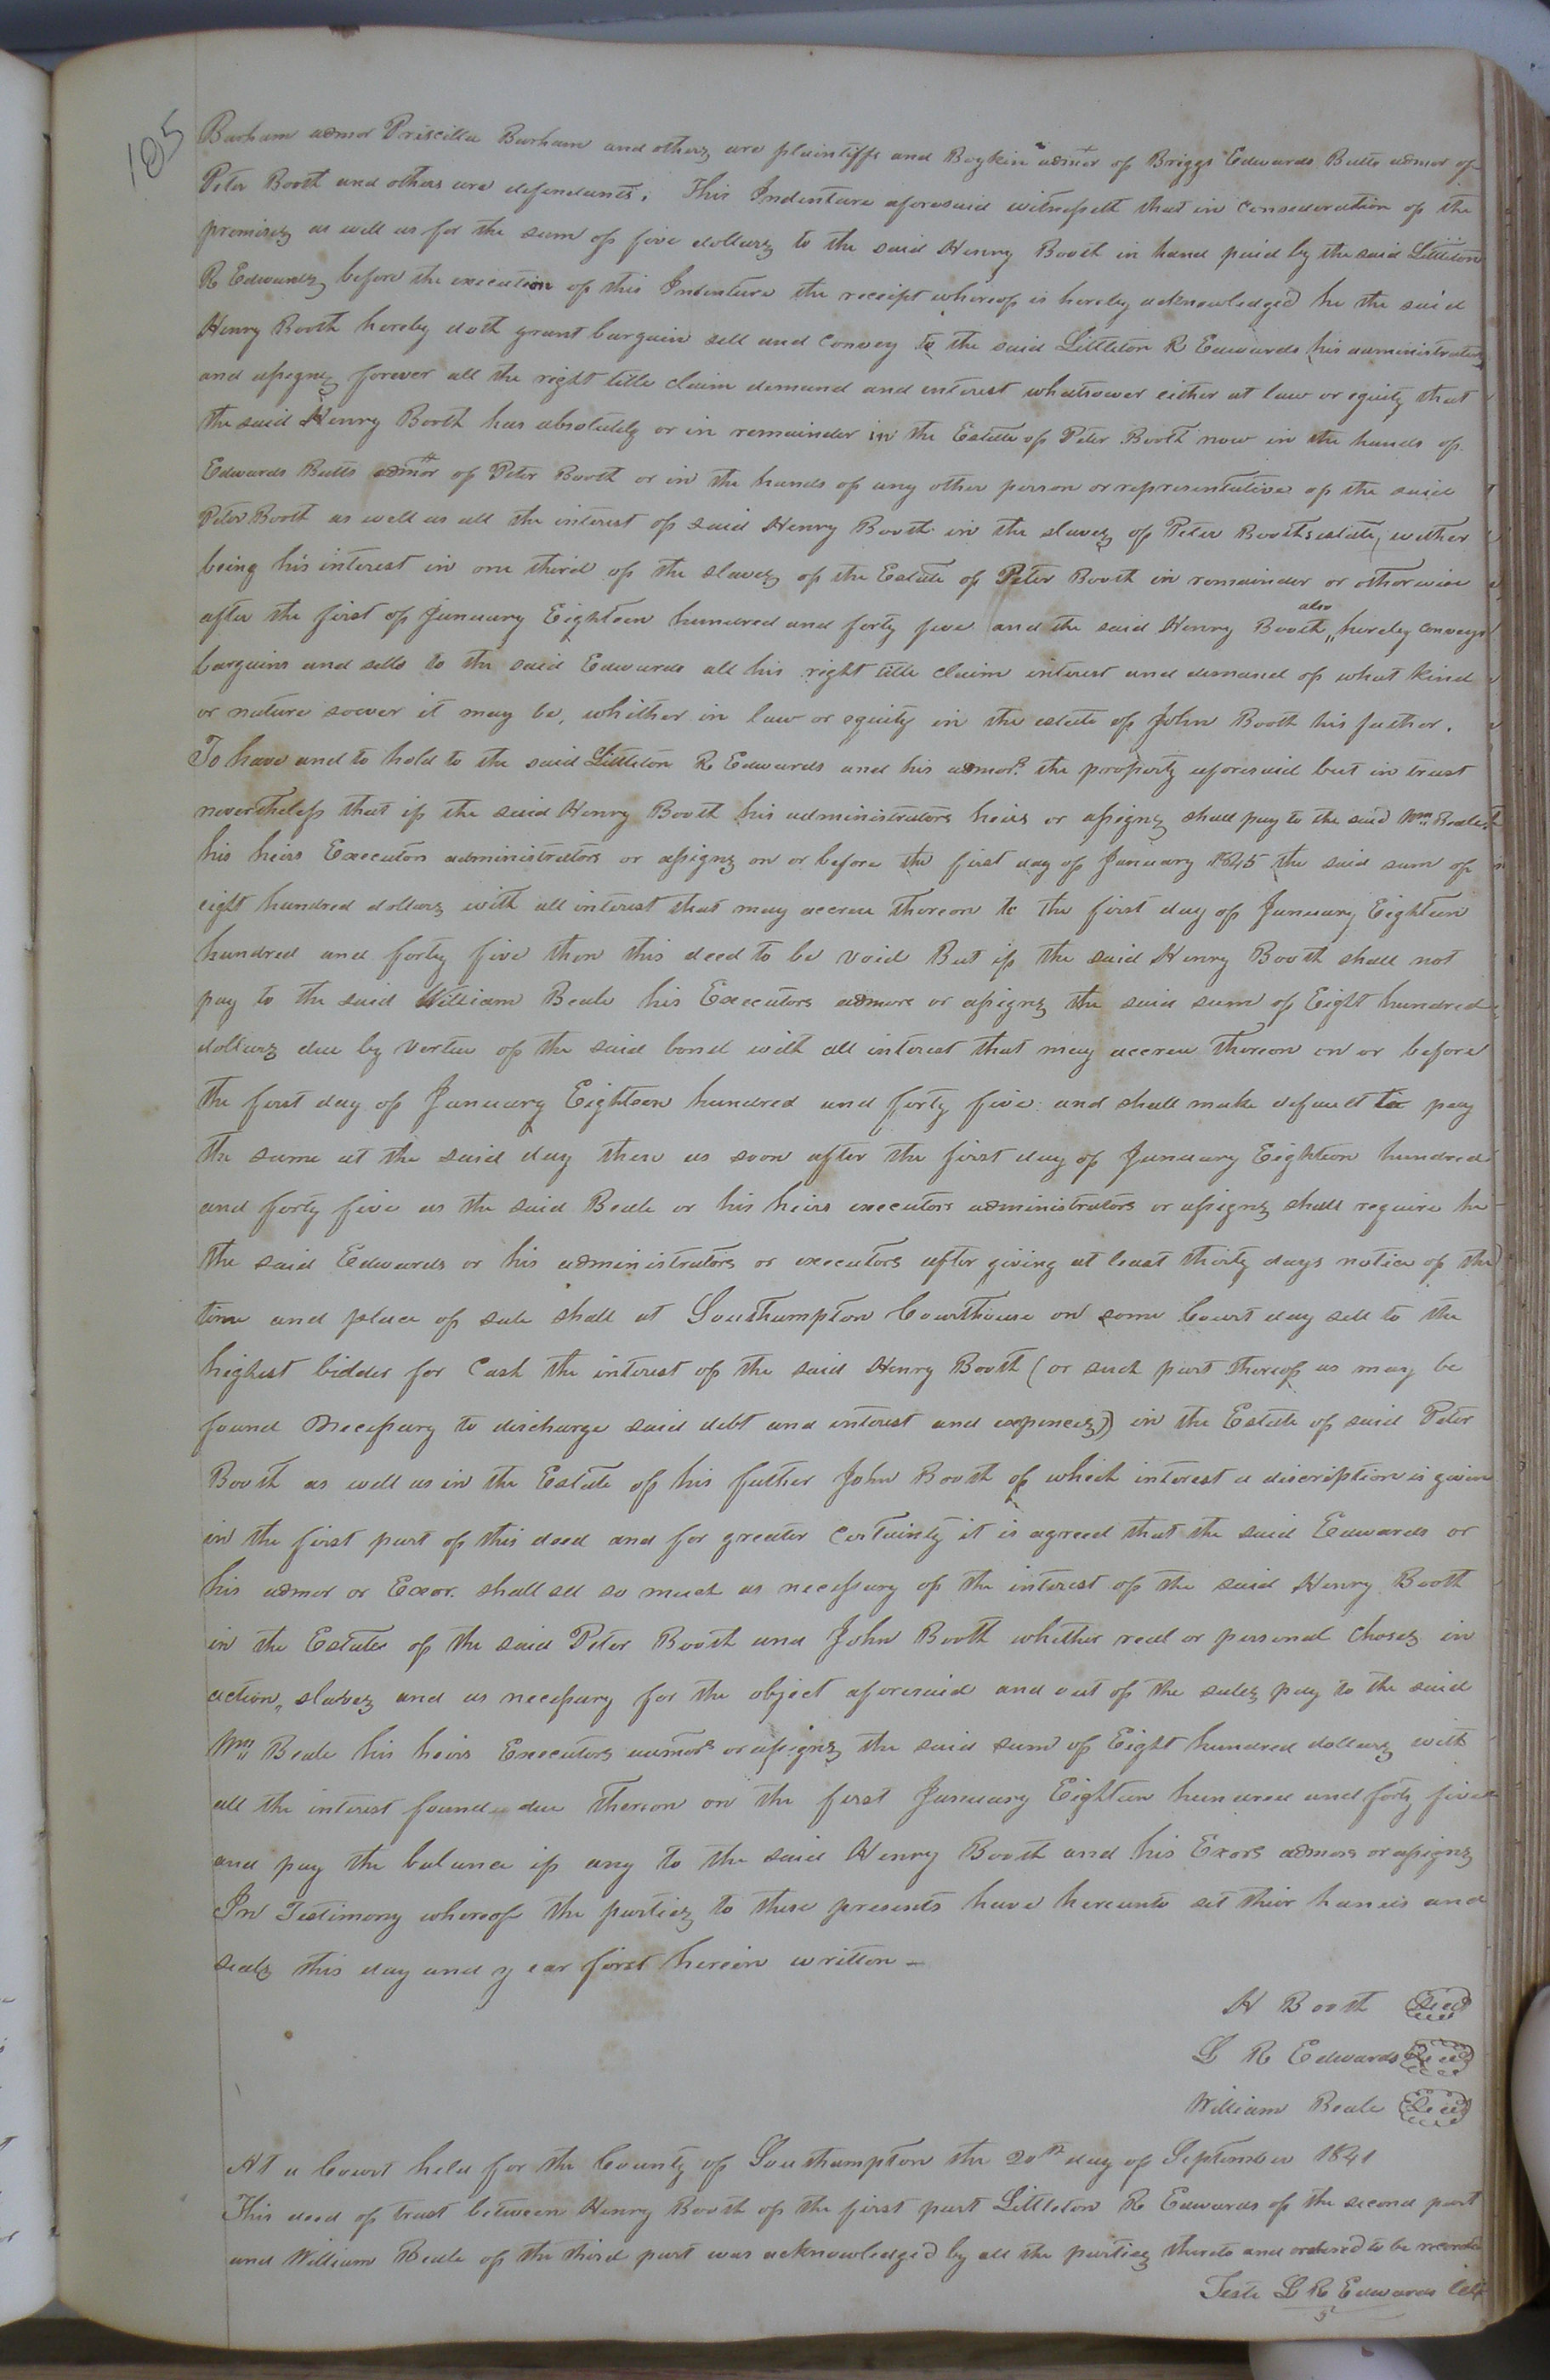 105
Barham admor Priscilla Barham and others are plaintiffs and Boykin admor of Briggs Edwards Butts admor of
Peter Booth and others are defendants. This Indenture aforesaid witnesseth that in consideration of the
premises as well as for the sum of five dollars to the said Henry Booth in hand paid by the said Littleton
R Edwards before the execution of this Indenture the receipt whereof is hereby acknowledged he the said
Henry Booth hereby doth grant bargain sell and convey to the said Littleton R Edwards his administrators
and assigns forever all the right title claim demand and interest whatsoever either at law or equity that
the said Henry Booth has absolutely or in remainder in the Estate of Peter Booth now in the hands of
Edwards Butts admor of Peter Booth or in the hands of any other person or representative of the said
Peter Booth as well as all the interest of said Henry Booth in the slaves of Peter Booths estate, wether
being his interest in one third of the slaves of the Estate of Peter Booth in remainder or otherwise
after the first of January Eighteen hundred and forty five and the said Henry Booth also hereby conveys
bargains and sells to the said Edwards all his right title claim interest and demand of what kind
or nature soever it may be, whither in law or equity in the estate of John Booth his father.
To have and to hold to the said Littleton R Edwards and his admors. the property aforesaid but in trust
nevertheless that if the said Henry Booth his administrators heirs or assigns shall pay to the said Wm. Beale
his heirs Executors administrators or assigns on or before the first day of January 1845 the said sum of
eight hundred dollars with all interest that may accrue thereon to the first day of January Eighteen
hundred and forty five then this deed to be void But if the said Henry Booth shall not
pay to the said William Beale his Executors admors or assigns the said sum of Eight hundred
dollars due by vertue of the said bond with all interest that may accrue thereon on or before
the first day of January Eighteen hundred and forty five and shall make default to pay
the same at the said day then as soon after the first day of January Eighteen hundred
and forty five as the said Beale or his heirs executors administrators or assigns shall require he
the said Edwards or his administrators or executors after giving at least thirty days notice of the
time and place of sale shall at Southampton Courthouse on some Court day sell to the
highest bidder for Cash the interest of the said Henry Booth (or such part thereof as may be
found Necessary to discharge said debt and interest and expences) in the Estate of said Peter
Booth as well as in the Estate of his father John Booth of which interest a discription is given
in the first part of this deed and for greater certainty it is agreed that the said Edwards or
his admor or Exor. shall sell so much as necessary of the interest of the said Henry Booth
in the Estates of the said Peter Booth and John Booth whether real or personal choses in
action, slaves and as necessary for the object aforesaid and out of the sales pay to the said
Wm. Beale his heirs Executors admors or assigns the said sum of Eight hundred dollars with
all the interest found due thereon on the first January Eighteen hundred and forty five
and pay the balance if any to the said Henry Booth and his Exors admors or assigns
In Testimony whereof the parties to these presents have hereunto set their hands and
seals this day and year first herein written –
H Booth Seal
L R Edwards Seal
William Beale Seal
At a Court held for the County of Southampton the 20th day of September 1841
This deed of trust between Henry Booth of the first part Littleton R Edwards of the second part
and William Beale of the third part was acknowledged by all the parties thereto and ordered to be recorded
Teste L R Edwards Clk